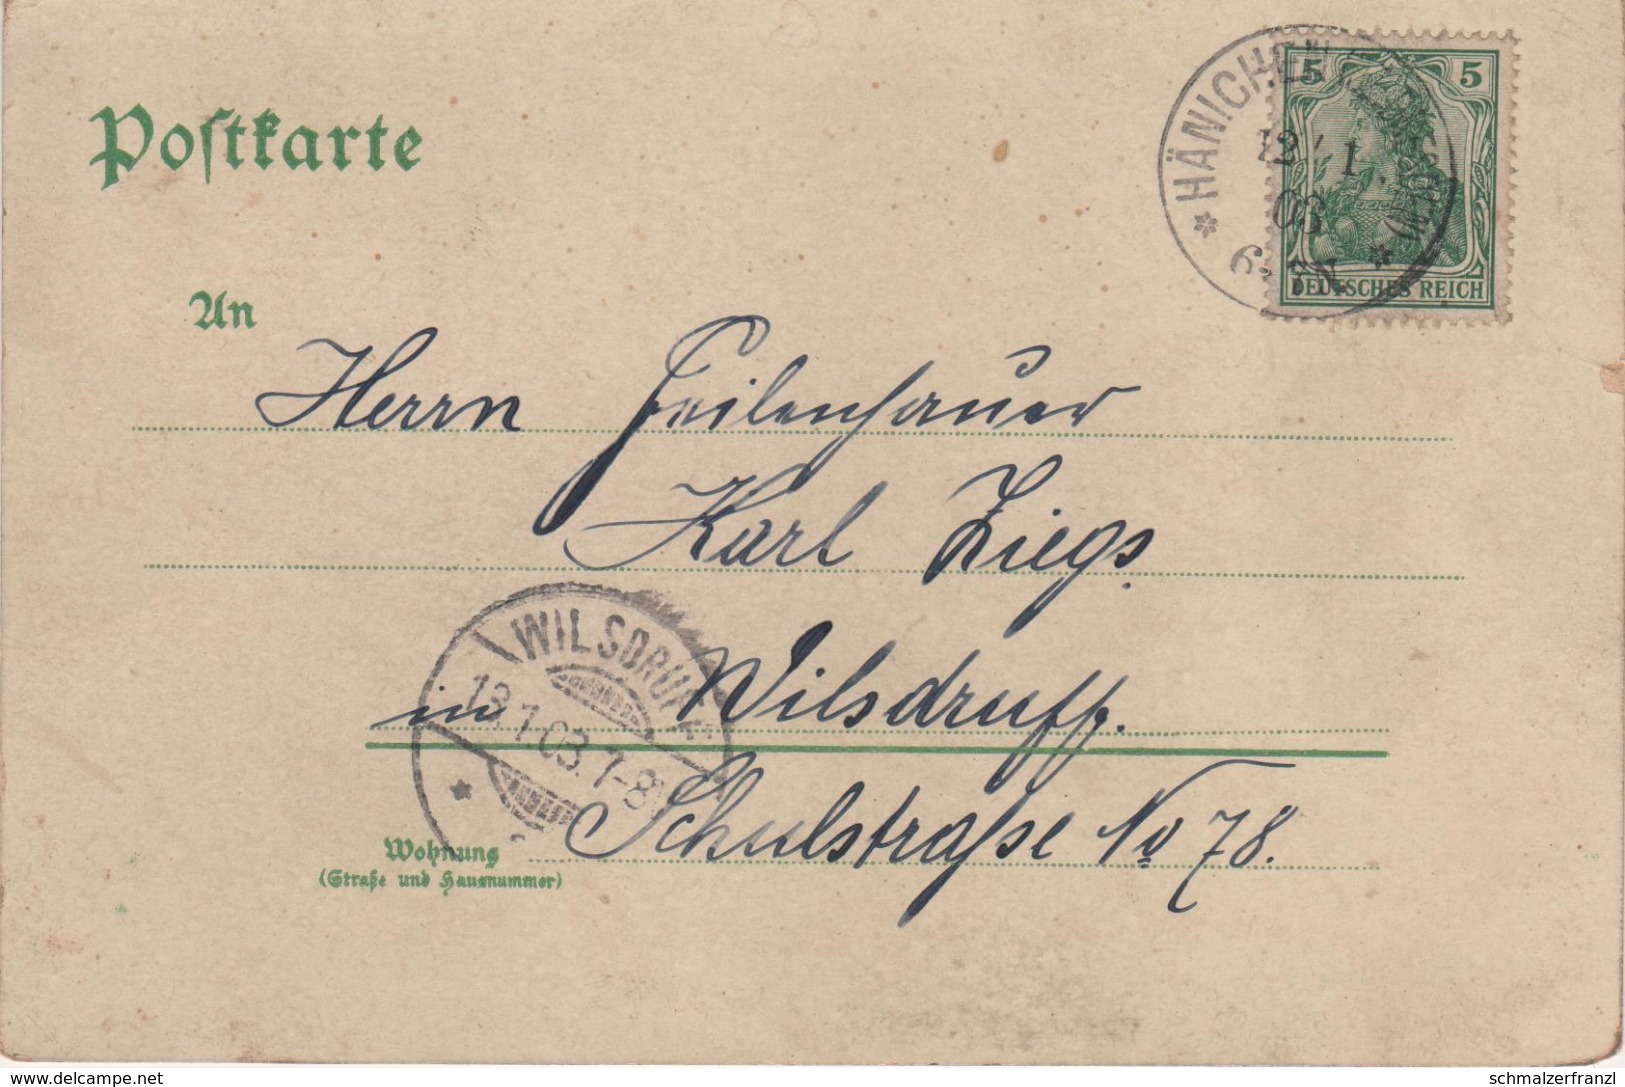 Postkarte
HÄNICHEN
12 1
03
6-7N
5 5
DEUTSCHES REICH
An
Herrn Feilenhauer
Karl Ziegs.
WILSDRUFF
13.1.03.7-8
in Wilsdruff.
Schulstraße No 78.
Wohnung
(Straße und Hausnummer)
www.delcampe.net
schmalzerfranzl